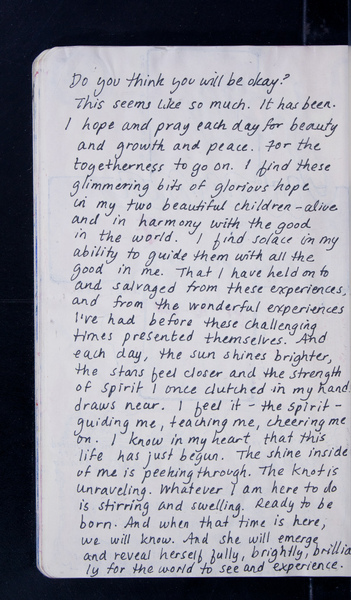 Do you think you will be okay?
This seems like so much. It has been.
I hope and pray each day for beauty
and growth and peace. For the
togetherness to go on. I find these
glimmering bits of glorious hope
in my two beautiful children - alive
and in harmony with the good
in the world. I find solace in my
ability to guide them with all the
good in me. That I have held on to
and salvaged from these experiences,
and from the wonderful experiences
I've had before these challenging
times presented themselves. And
each day, the sun shines brighter,
the stars feel closer and the strength
of spirit I once clutched in my hand
draws near. I feel it - the spirit -
guiding me, teaching me, cheering me
on. I know in my heart that this
life has just begun. The shine inside
of me is peeking through. The knot is
unraveling. Whatever I am here to do
is stirring and swelling. Ready to be
born. And when that time is here,
we will know. And she will emerge
and reveal herself fully, brightly, brillia
ly for the world to see and experience.